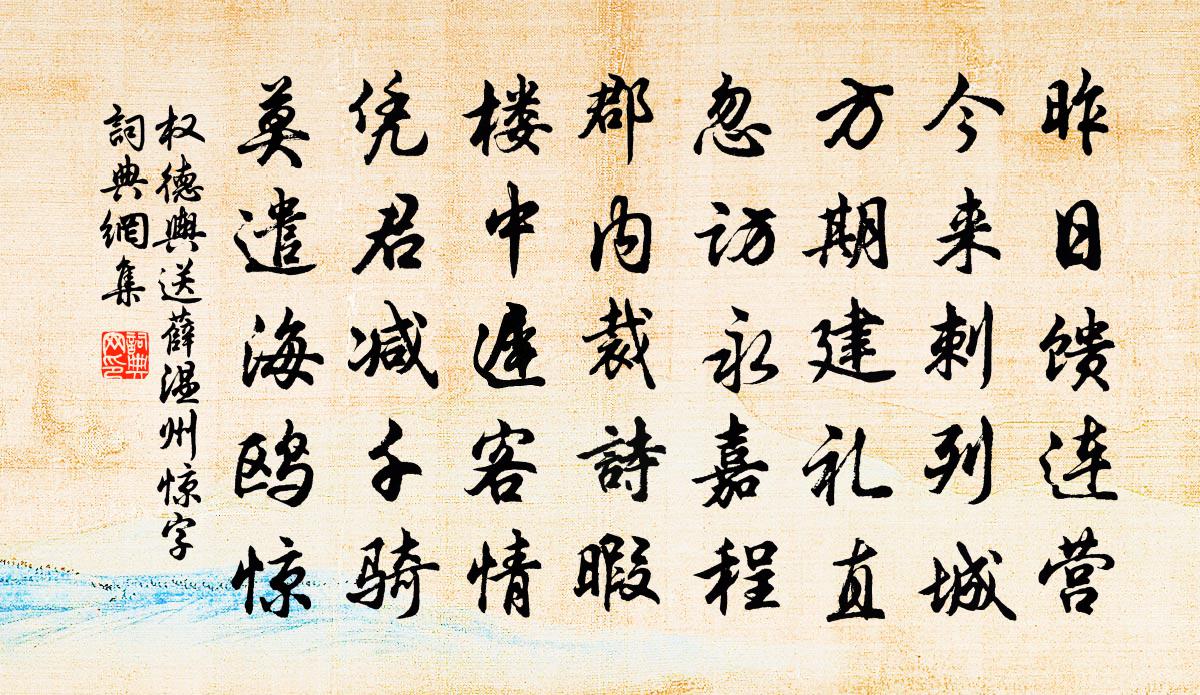 昨日馈连营
今来刺列城
方期建礼直
忽访永嘉程
郡内裁詩暇
楼中遲客情
凭君减千骑
莫遣海鸥惊
权德輿送薛温州惊字
詞典網集
詞典